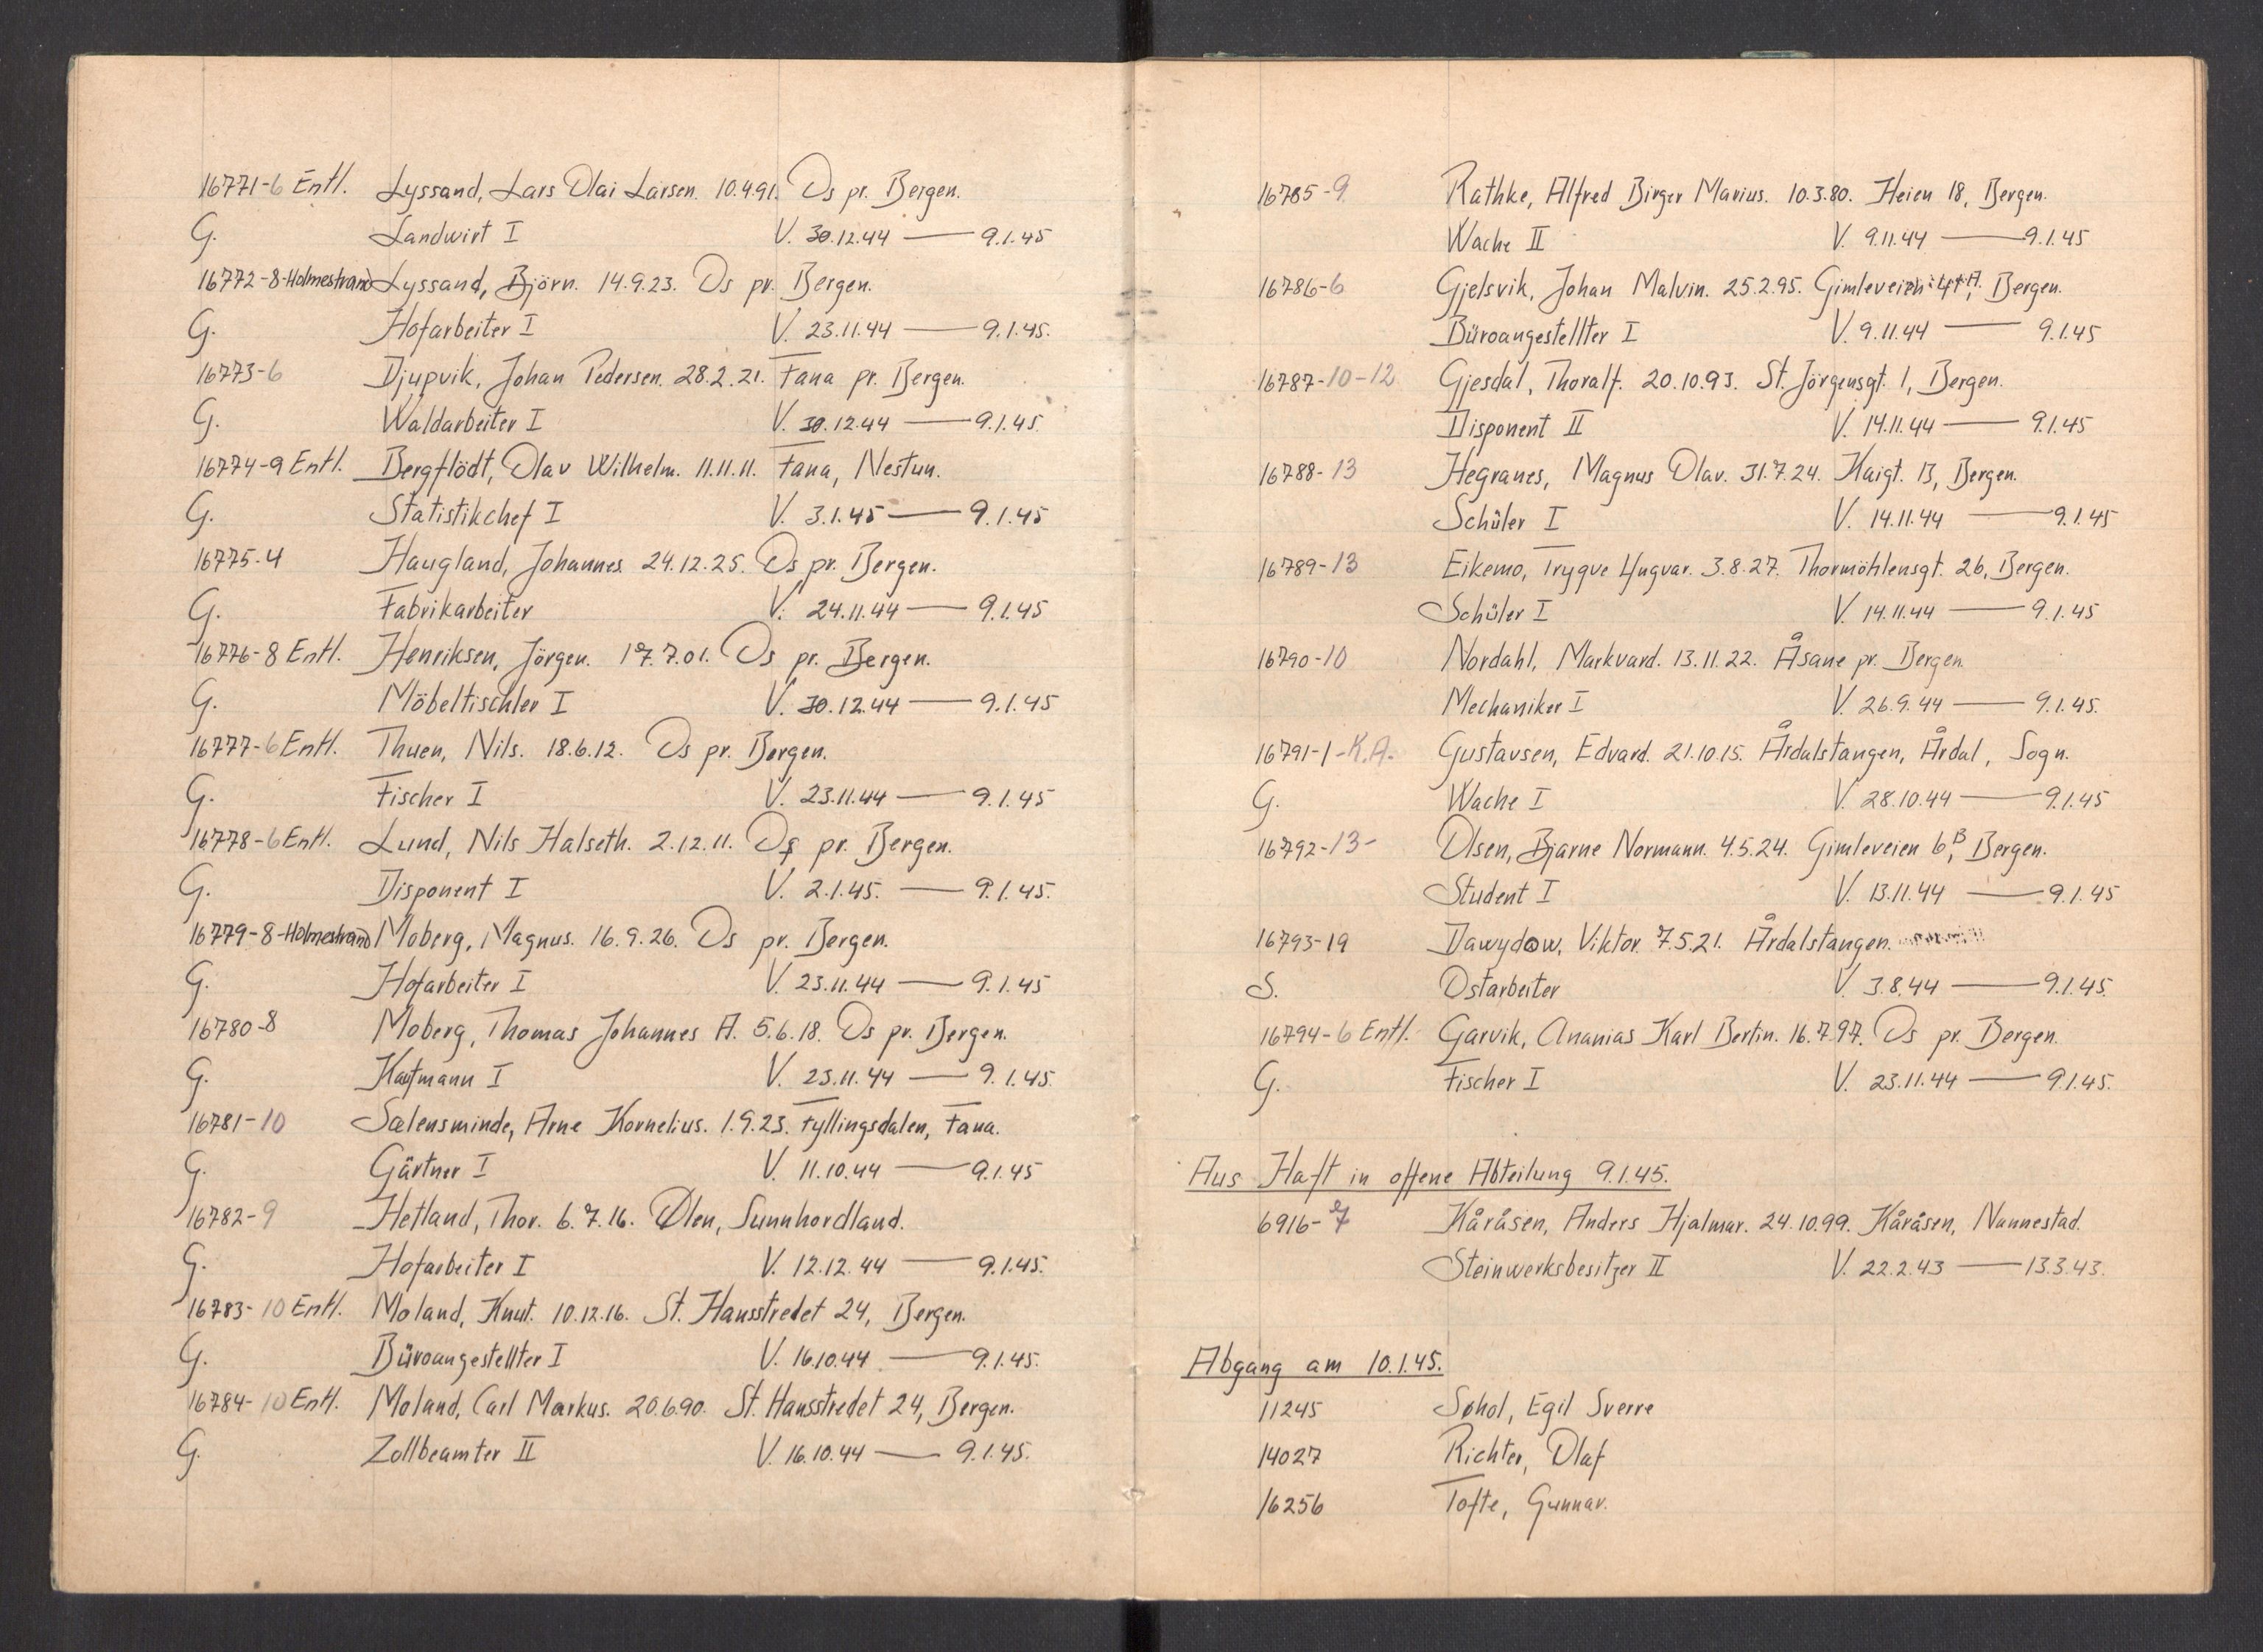 16771-6 Entl. Lyssand, Lars Olai Larsen. 10.4.91. Os pr. Bergen.
G. Landwirt I V. 30.12.44 — 9.1.45
16772-8-Holmestrand Lyssand, Björn. 14.9.23. Os pr. Bergen.
G. Hofarbeiter I V. 23.11.44 — 9.1.45.
16773-6 Djupvik, Johan Pedersen. 28.2.21. Fana pr. Bergen.
G. Waldarbeiter I V. 30.12.44 — 9.1.45.
16774-9 Entl. Bergflödt, Olav Wilhelm. 11.11.11. Fana, Nestun.
G. Statistikchef I V. 3.1.45 — 9.1.45
16775-4 Haugland, Johannes. 24.12.25. Os pr. Bergen.
G. Fabrikarbeiter V. 24.11.44 — 9.1.45
16776-8 Entl. Henriksen, Jörgen. 17.7.01. Os pr. Bergen.
G. Möbeltischler I V. 30.12.44 — 9.1.45
16777-6 Entl. Thuen, Nils. 18.6.12. Os pr. Bergen.
G. Fischer I V. 23.11.44 — 9.1.45
16778-6 Entl. Lund, Nils Halseth. 2.12.11. Os pr. Bergen.
G. Disponent I V. 2.1.45. — 9.1.45.
16779-8-Holmestrand Moberg, Magnus. 16.9.26. Os pr. Bergen.
G. Hofarbeiter I V. 23.11.44 — 9.1.45
16780-8 Moberg, Thomas Johannes A. 5.6.18. Os pr. Bergen.
G. Kaufmann I V. 23.11.44 — 9.1.45.
16781-10 Sælensminde, Arne Kornelius. 1.9.23. Fyllingsdalen, Fana.
G. Gärtner I V. 11.10.44 — 9.1.45
16782-9 Hetland, Thor. 6.7.16. Ølen, Sunnhordland.
G. Hofarbeiter I V. 12.12.44 — 9.1.45.
16783-10 Entl. Moland, Knut. 10.12.16. St. Hansstredet 24, Bergen.
G. Büroangestellter I V. 16.10.44 — 9.1.45.
16784-10 Entl. Moland, Carl Markus. 20.6.90. St. Hansstredet 24, Bergen.
G. Zollbeamter II V. 16.10.44 — 9.1.45.
16785-9 Rathke, Alfred Birger Marius. 10.3.80. Heien 18, Bergen.
Wache II V. 9.11.44 — 9.1.45
16786-6 Gjelsvik, Johan Malvin. 25.2.95. Gimleveien Bergen.
Büroangestellter I V. 9.11.44 — 9.1.45
16787-10-12 Gjesdal, Thoralf. 20.10.93. St. Jörgensgt. 1, Bergen.
Disponent II V. 14.11.44 — 9.1.45
16788-13 Hegranes, Magnus Olav. 31.7.24. Kaigt. 13, Bergen.
Schüler I V. 14.11.44 — 9.1.45
16789-13 Eikemo, Trygve Yngvar. 3.8.27. Thormöhlensgt. 26, Bergen.
Schüler I V. 14.11.44 — 9.1.45
16790-10 Nordahl, Markvard. 13.11.22. Åsane pr. Bergen
Mechaniker I V. 26.9.44 — 9.1.45.
16791-1-K.A. Gustavsen, Edvard. 21.10.15. Årdalstangen, Årdal, Sogn.
G. Wache I V. 28.10.44 — 9.1.45
16792-13- Olsen, Bjarne Normann. 4.5.24. Gimleveien 6B, Bergen.
Student I V. 13.11.44 — 9.1.45
16793-19 Dawydow, Viktor. 7.5.21. Årdalstangen.
S. Ostarbeiter V. 3.8.44 — 9.1.45.
16794-6 Entl. Garvik, Ananias Karl Bertin. 16.7.97. Os pr. Bergen.
G. Fischer I V. 23.11.44 — 9.1.45.
Aus Haft in offene Abteilung 9.1.45.
6916-7 Kåråsen, Anders Hjalmar. 24.10.99. Kåråsen, Nannestad.
Steinwerksbesitzer II V. 22.2.43 — 13.3.43.
Abgang am 10.1.45.
11245 Søhol, Egil Sverre
14027 Richter, Olaf
16256 Tofte, Gunnar.